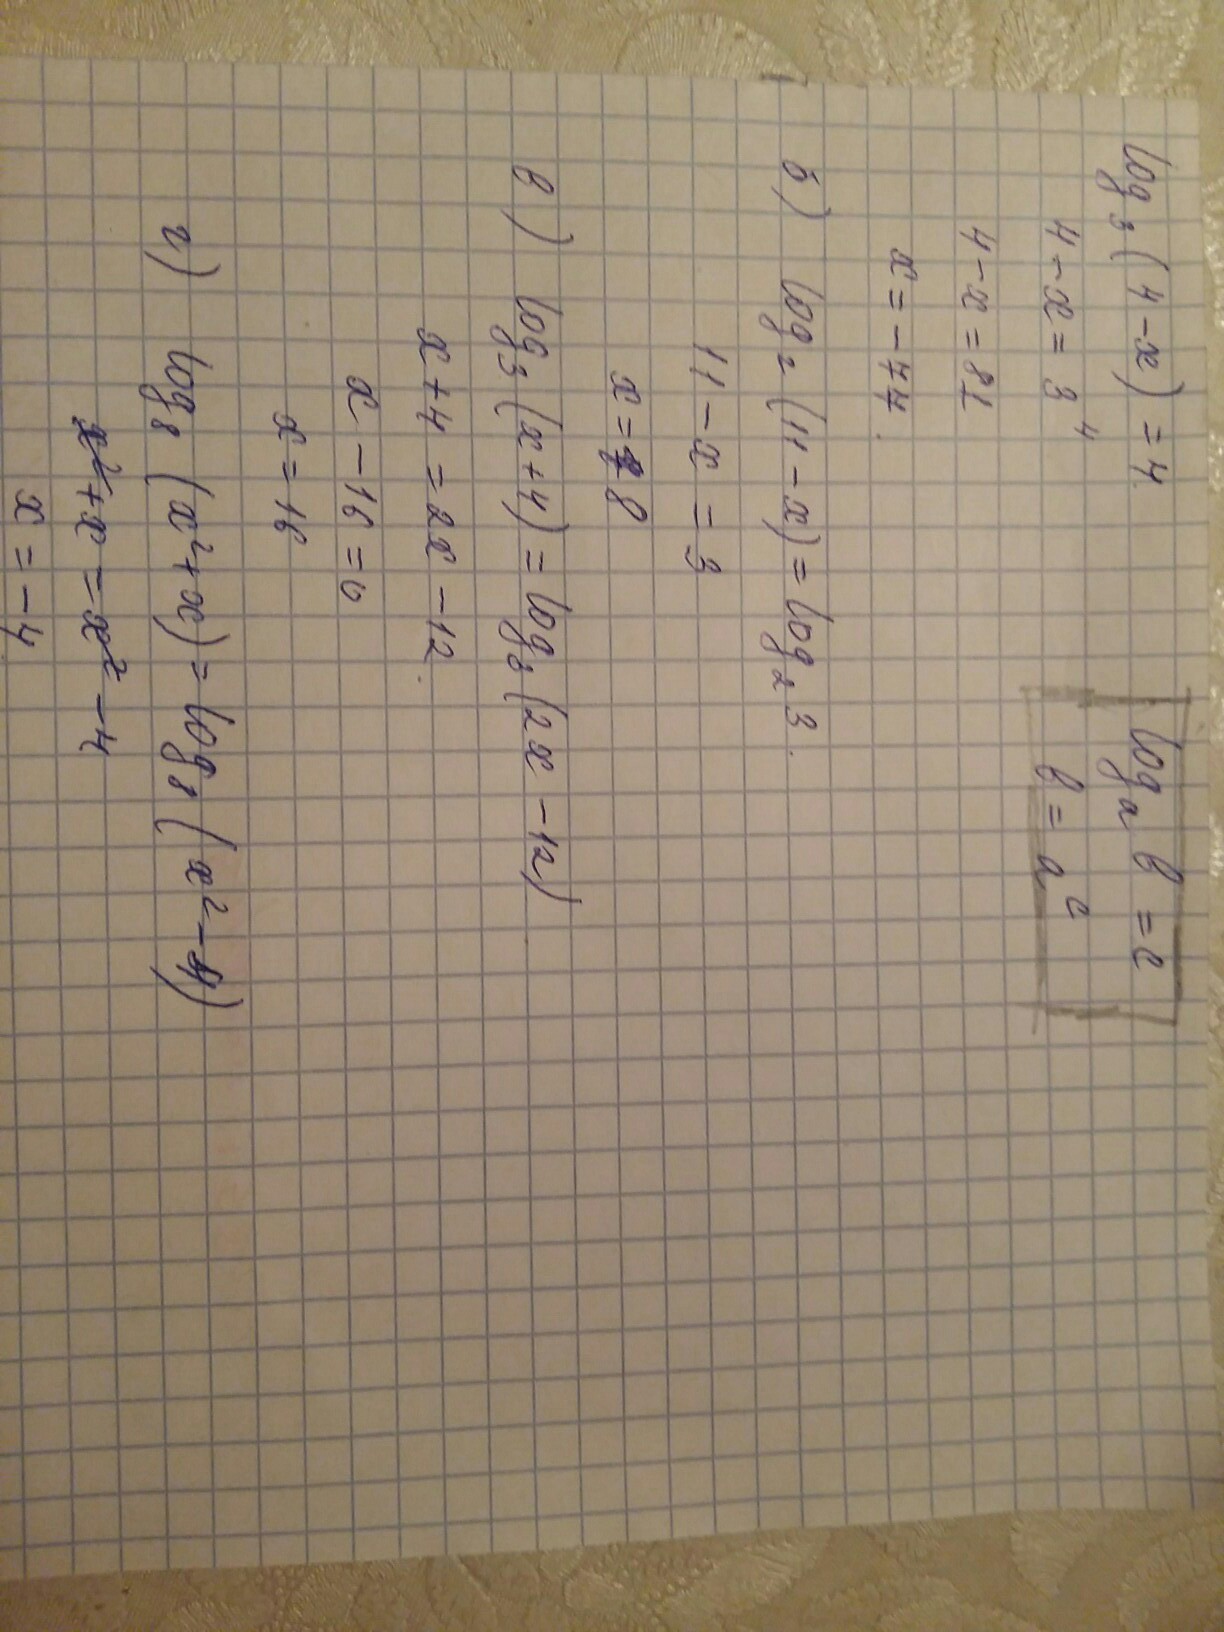 log₃(4-x)=4.
4-x=3⁴
4-x=81
x=-77.
logₐ b = c
b = aᶜ
б) log₂(11-x)=log₂3.
11-x=3
x=8
в) log₃(x+4)=log₃(2x-12)
x+4=2x-12.
x-16=0
x=16
г) log₈(x²+x)=log₈(x²-4)
x²+x=x²-4
x=-4